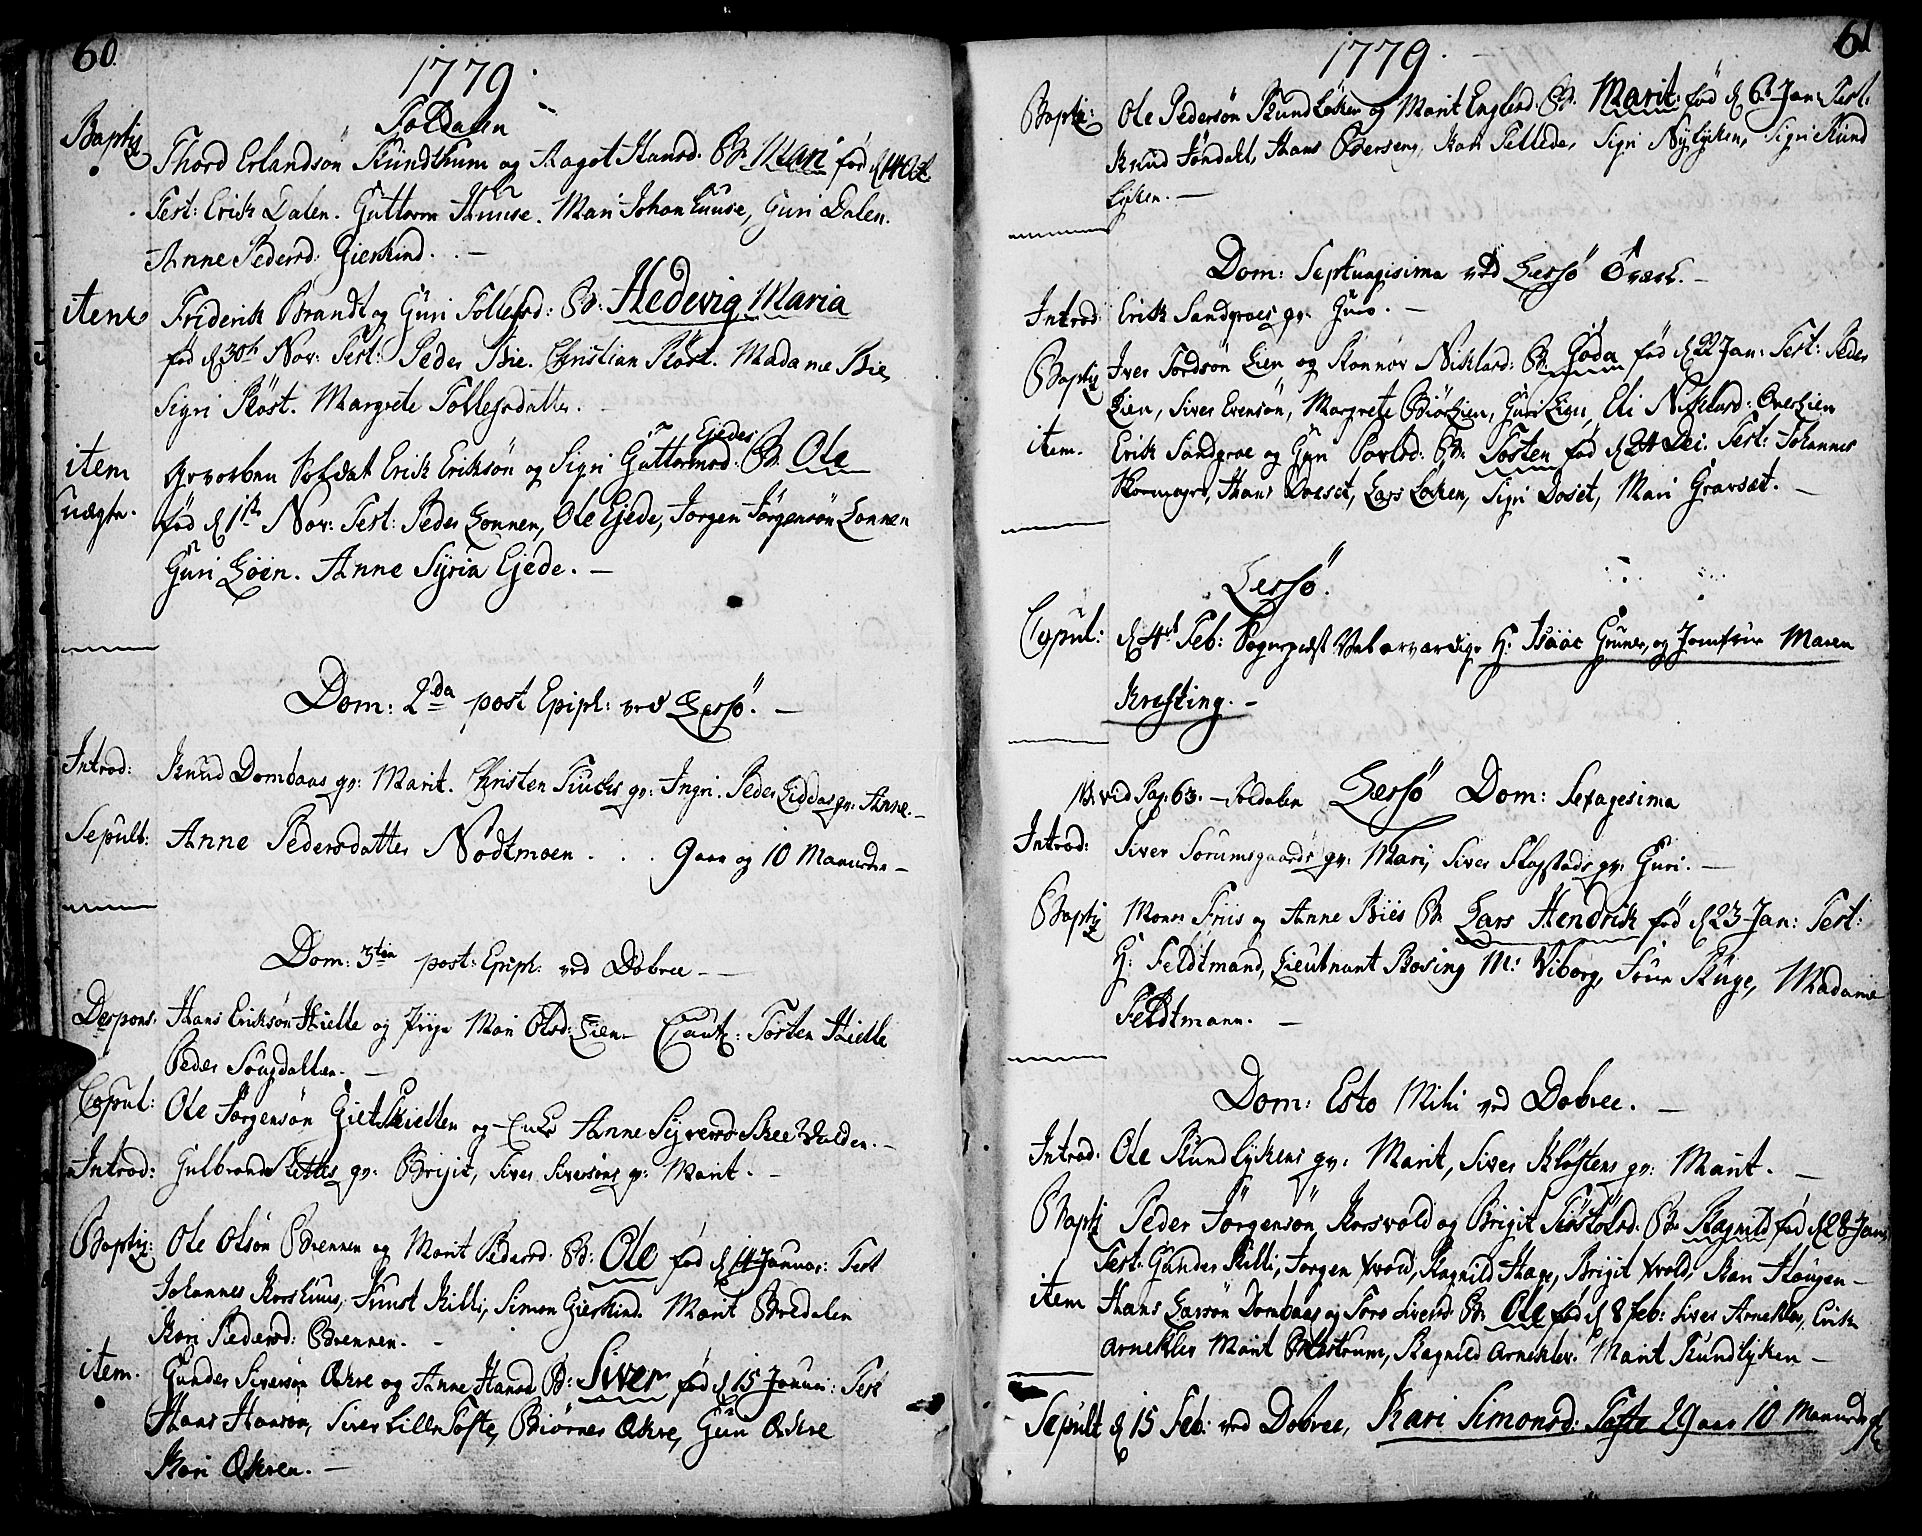 60.
1779.
Foldalen
Baptiz Thord Erlandsön Rundthum og Aagot Hansd. B. Mari fød d.
Test: Erik Dalen. Guttorm Huuse. Mari Johan Huuse, Guri Dalen.
Anne Pedersd: Gierkind. –
item Friderik Brandt og Guri Tollefsd: B: Hedevig Maria
fød d 30te Nov: Test: Peder Bie. Christian Röst. Madame Bie,
Sigri Röst. Margrete Tollefsdatter.
Ejede
item Gevorben Soldat Erik Eriksön og Sigri Guttormsd: B. Ole
uægte. fød d 1ste Nov: Test: Peder Lonnen, Ole Ejede, Jörgen Jörgensön Lonnen
Guri Löen. Anne Syria Ejede. –
Dom: 2da post Epiph: ved Lessö. –
Introd: Knud Dombaas qv: Marit. Christen qv: Ingri. Peder Liddas qv: Anne. –
Sepult: Anne Pedersdatter Nodtmoen . . . 9 aar og 10 Maaneder –
Dom: 3tia post: Epiph: ved Dobree –
Despons. Hans Eriksön Hielle og Pige Mari Olsd: Lien – Caut: Torsten Hielle
Peder Söugdallen. –
Copul: Ole Jörgensön Gietskiellen og Enke Anne Syversd. –
Introd: Gulbrands qv: Brigit, Siver Siversöns qv: Marit. –
Baptiz: Ole Olsön Brennen og Marit Pedersd. B: Ole fød d 14 Januar: Test
Johannes Korshuus, Knut Killi, Simon Gierkind. Marit Bredalen
Kari Pedersd: Brennen. –
item. Gunder Siversön Økre og Anne Hansd B: Siver fød d 15 Januari: Test
Hans Hansön, Siver Lille Tofte, Biörner Økre, Guri Økre
Kari Økren. –
61
1779.
Baptiz: Ole Pedersön Rundlöken og Marit Englesd: B. Marit: fød d 6te Jan: Test:
Knud Jöndahl, Hans, Kari, Sigri Nylyken, Sigri Rund
lyken. –
Dom: Septuagisima ved Lessö Öværk. –
Introd: Erik Sandgroes qv: Guro. –
Baptiz Iver Tordsön Lien og Ronnøv Niklasd: B. Goda fød d 22 Jan: Test: Peder
Lien, Siver Evensön, Margrete Biörlien, Guri Lien, Eli Niklasd: Overlien
item. Erik Sandgroe og Guri Povlsd: B: Tosten fød d 24 Dec. Test: Johannes
Skomager, Hans Doeset, Lars Löken, Sigri Doset, Mari Gravset. –
Lessö.
Copul: d 4de Feb: Sogneprest Velærværdige H: Isaac Gruner, og Jomfrue Maren
Krefting. –
N. vid Pag. 63. – Foldalen Lessö Dom: Sexagesima
Introd: Siver Sorumsgaards qv: Mari, Siver Skogstads qv: Guri. –
Baptiz Mons: Friis og Anne Biies B. Lars Hendrik fød d 23 Jan: Test:
H: Feldtmand, Lieutnant Rosing M: Viborg, Frue Ruge, Madame
Feldtmann. –
Dom: Esto Mihi ved Dobree. –
Introd. Ole Rundlykens qv: Marit, Siver Kloftens qv: Marit. –
Baptiz Peder Jörgensön Korsvold og Brigit B: Ragnild fød d 28 Jan.
Test: Gunder Killi, Jorgen Wold, Ragnild Hage, Brigit Wold, Kari Haugen –
item Hans Larsön Dombaas og Toro Siversd: B. Ole fød d 8 Feb: Siver Arneklev, Erik
Arneklev Marit, Ragnild Arneklev. Marit Rundlyken –
Sepult d 15 Feb. ved Dobree, Kari Simonsd: Tofte 29 aar 10 Maaneder